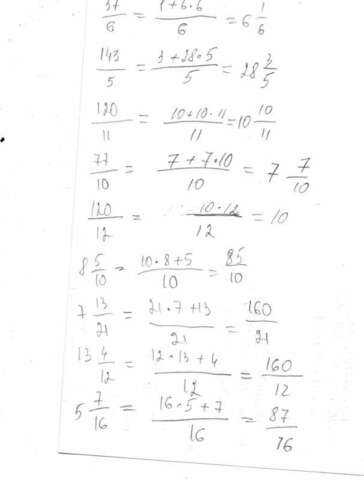 37/6 = (1+6·6)/6 = 6 1/6
143/5 = (3+28·5)/5 = 28 3/5
120/11 = (10+10·11)/11 = 10 10/11
77/10 = (7+7·10)/10 = 7 7/10
120/12 = (10·12)/12 = 10
8 5/10 = (10·8+5)/10 = 85/10
7 13/21 = (21·7+13)/21 = 160/21
13 4/12 = (12·13+4)/12 = 160/12
5 7/16 = (16·5+7)/16 = 87/16